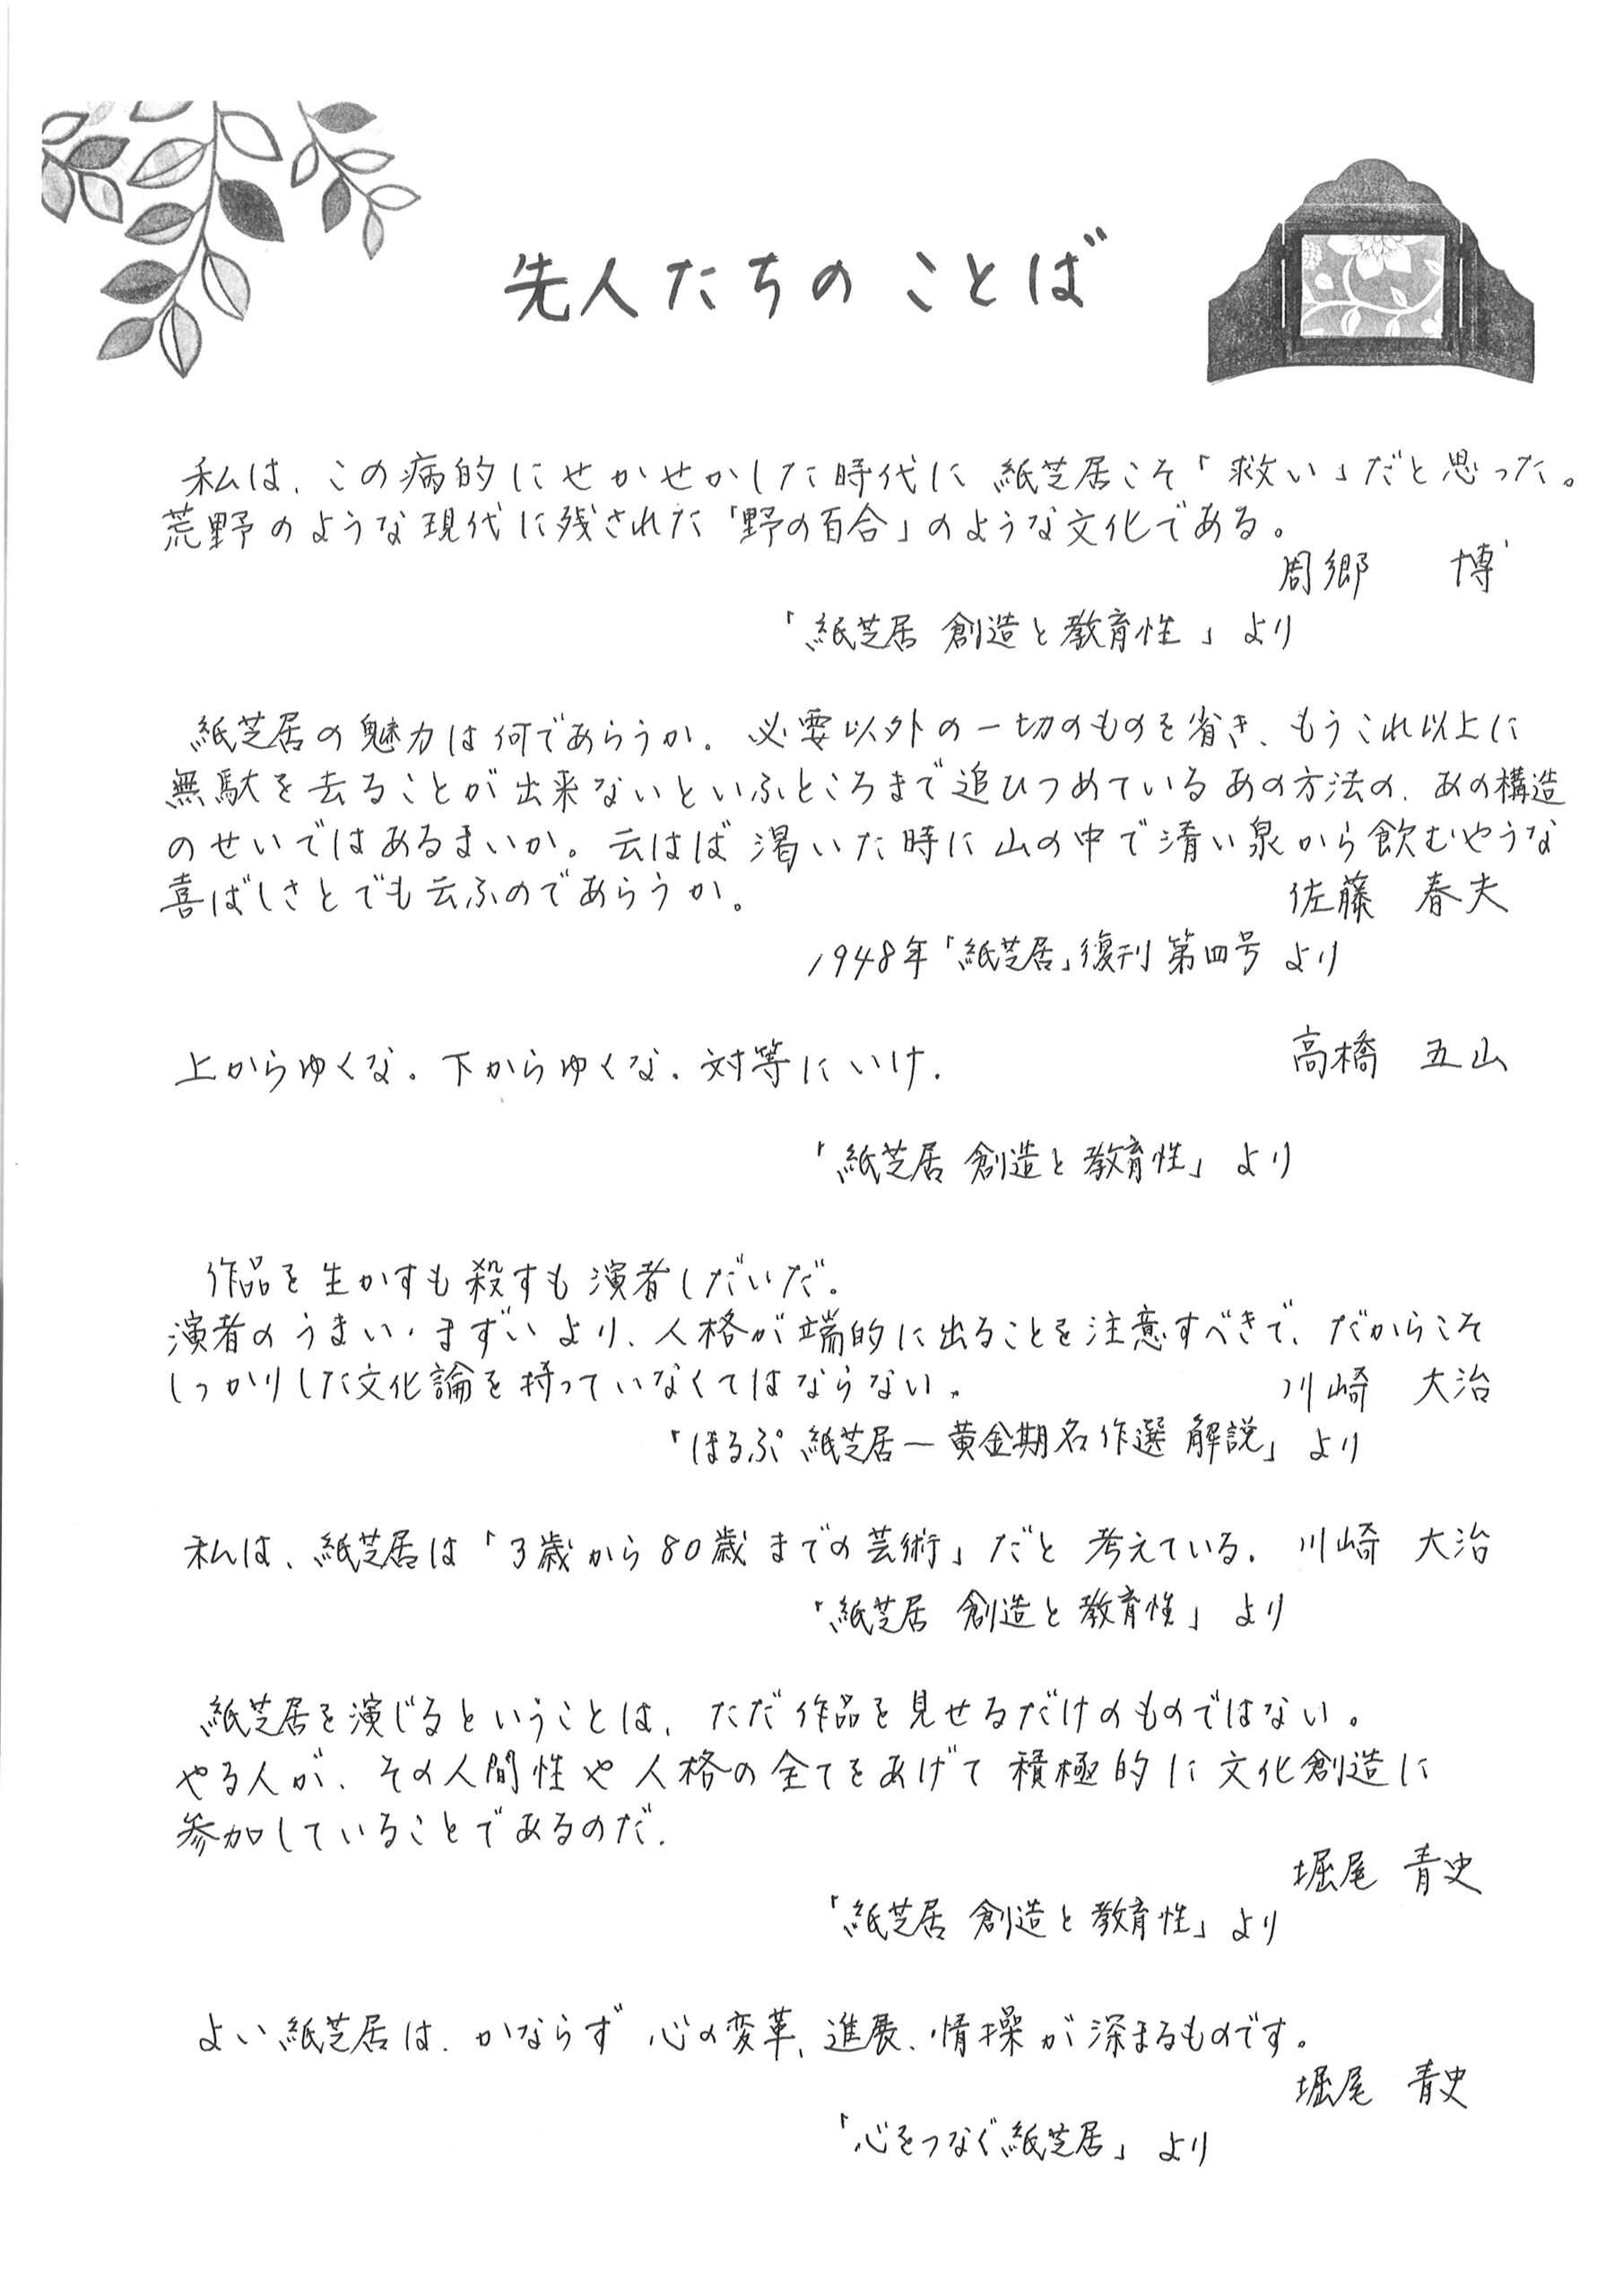 先人たちのことば
私は、この病的にせかせかした時代に紙芝居こそ「救い」だと思った。
荒野のような現代に残された「野の百合」のような文化である。
周郷　博
「紙芝居 創造と教育性」より
紙芝居の魅力は何であらうか。必要以外の一切のものを省き、もうこれ以上に
無駄を去ることが出来ないといふところまで追ひつめているあの方法の、あの構造
のせいではあるまいか。云はば渇いた時に山の中で清い泉から飲むやうな
喜ばしさとでも云ふのであらうか。
佐藤　春夫
1948年「紙芝居」復刊第四号 より
上からゆくな。下からゆくな、対等にいけ。
高橋　五山
「紙芝居 創造と教育性」より
作品を生かすも殺すも演者しだいだ。
演者のうまい・まずいより、人格が端的に出ることを注意すべきで、だからこそ
しっかりした文化論を持っていなくてはならない。
川崎　大治
「ほるぷ紙芝居ー黄金期名作選 解説」より
私は、紙芝居は「3歳から80歳までの芸術」だと考えている。川崎　大治
「紙芝居 創造と教育性」より
紙芝居を演じるということは、ただ作品を見せるだけのものではない。
やる人が、その人間性や人格の全てをあげて積極的に文化創造に
参加していることであるのだ。
堀尾 青史
「紙芝居 創造と教育性」より
よい紙芝居は、かならず心の変革、進展、情操が深まるものです。
堀尾 青史
「心をつなぐ紙芝居」より